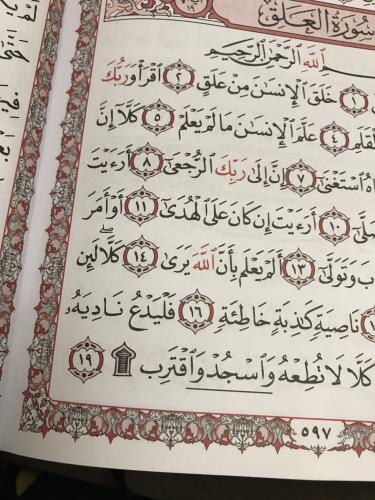 سُورَةُ العَلَقِ
ٱللَّهِ ٱلرَّحْمَٰنِ ٱلرَّحِيمِ
١ خَلَقَ ٱلْإِنسَٰنَ مِنْ عَلَقٍ ٢ ٱقْرَأْ وَرَبُّكَ
ٱلْقَلَمِ ٤ عَلَّمَ ٱلْإِنسَٰنَ مَا لَمْ يَعْلَمْ ٥ كَلَّآ إِنَّ
ٱسْتَغْنَىٰٓ ٧ إِنَّ إِلَىٰ رَبِّكَ ٱلرُّجْعَىٰٓ ٨ أَرَءَيْتَ
صَلَّىٰٓ ١٠ أَرَءَيْتَ إِن كَانَ عَلَى ٱلْهُدَىٰٓ ١١ أَوْ أَمَرَ
وَتَوَلَّىٰٓ ١٣ أَلَمْ يَعْلَم بِأَنَّ ٱللَّهَ يَرَىٰ ١٤ كَلَّا لَئِن
نَاصِيَةٍ كَٰذِبَةٍ خَاطِئَةٍ ١٦ فَلْيَدْعُ نَادِيَهُۥ
كَلَّا لَا تُطِعْهُ وَٱسْجُدْ وَٱقْتَرِب ۩ ١٩
٥٩٧